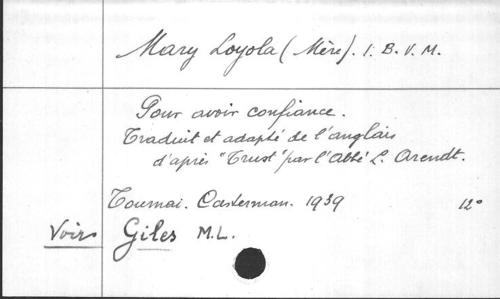 Mary Loyola (Mère). I. B. V. M.
Pour avoir confiance.
Traduit et adapté de l'anglais
d'après "Trust" par l'Abbé L. Arendt.
Tournai. Casterman. 1939 12°
Voir Giles M.L.